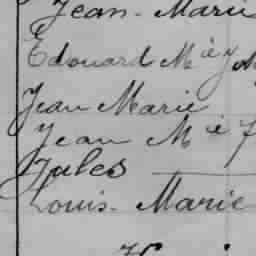 Jean-Marie
Edouard Mie
Jean Marie
Jean Mie
Jules
Louis-Marie